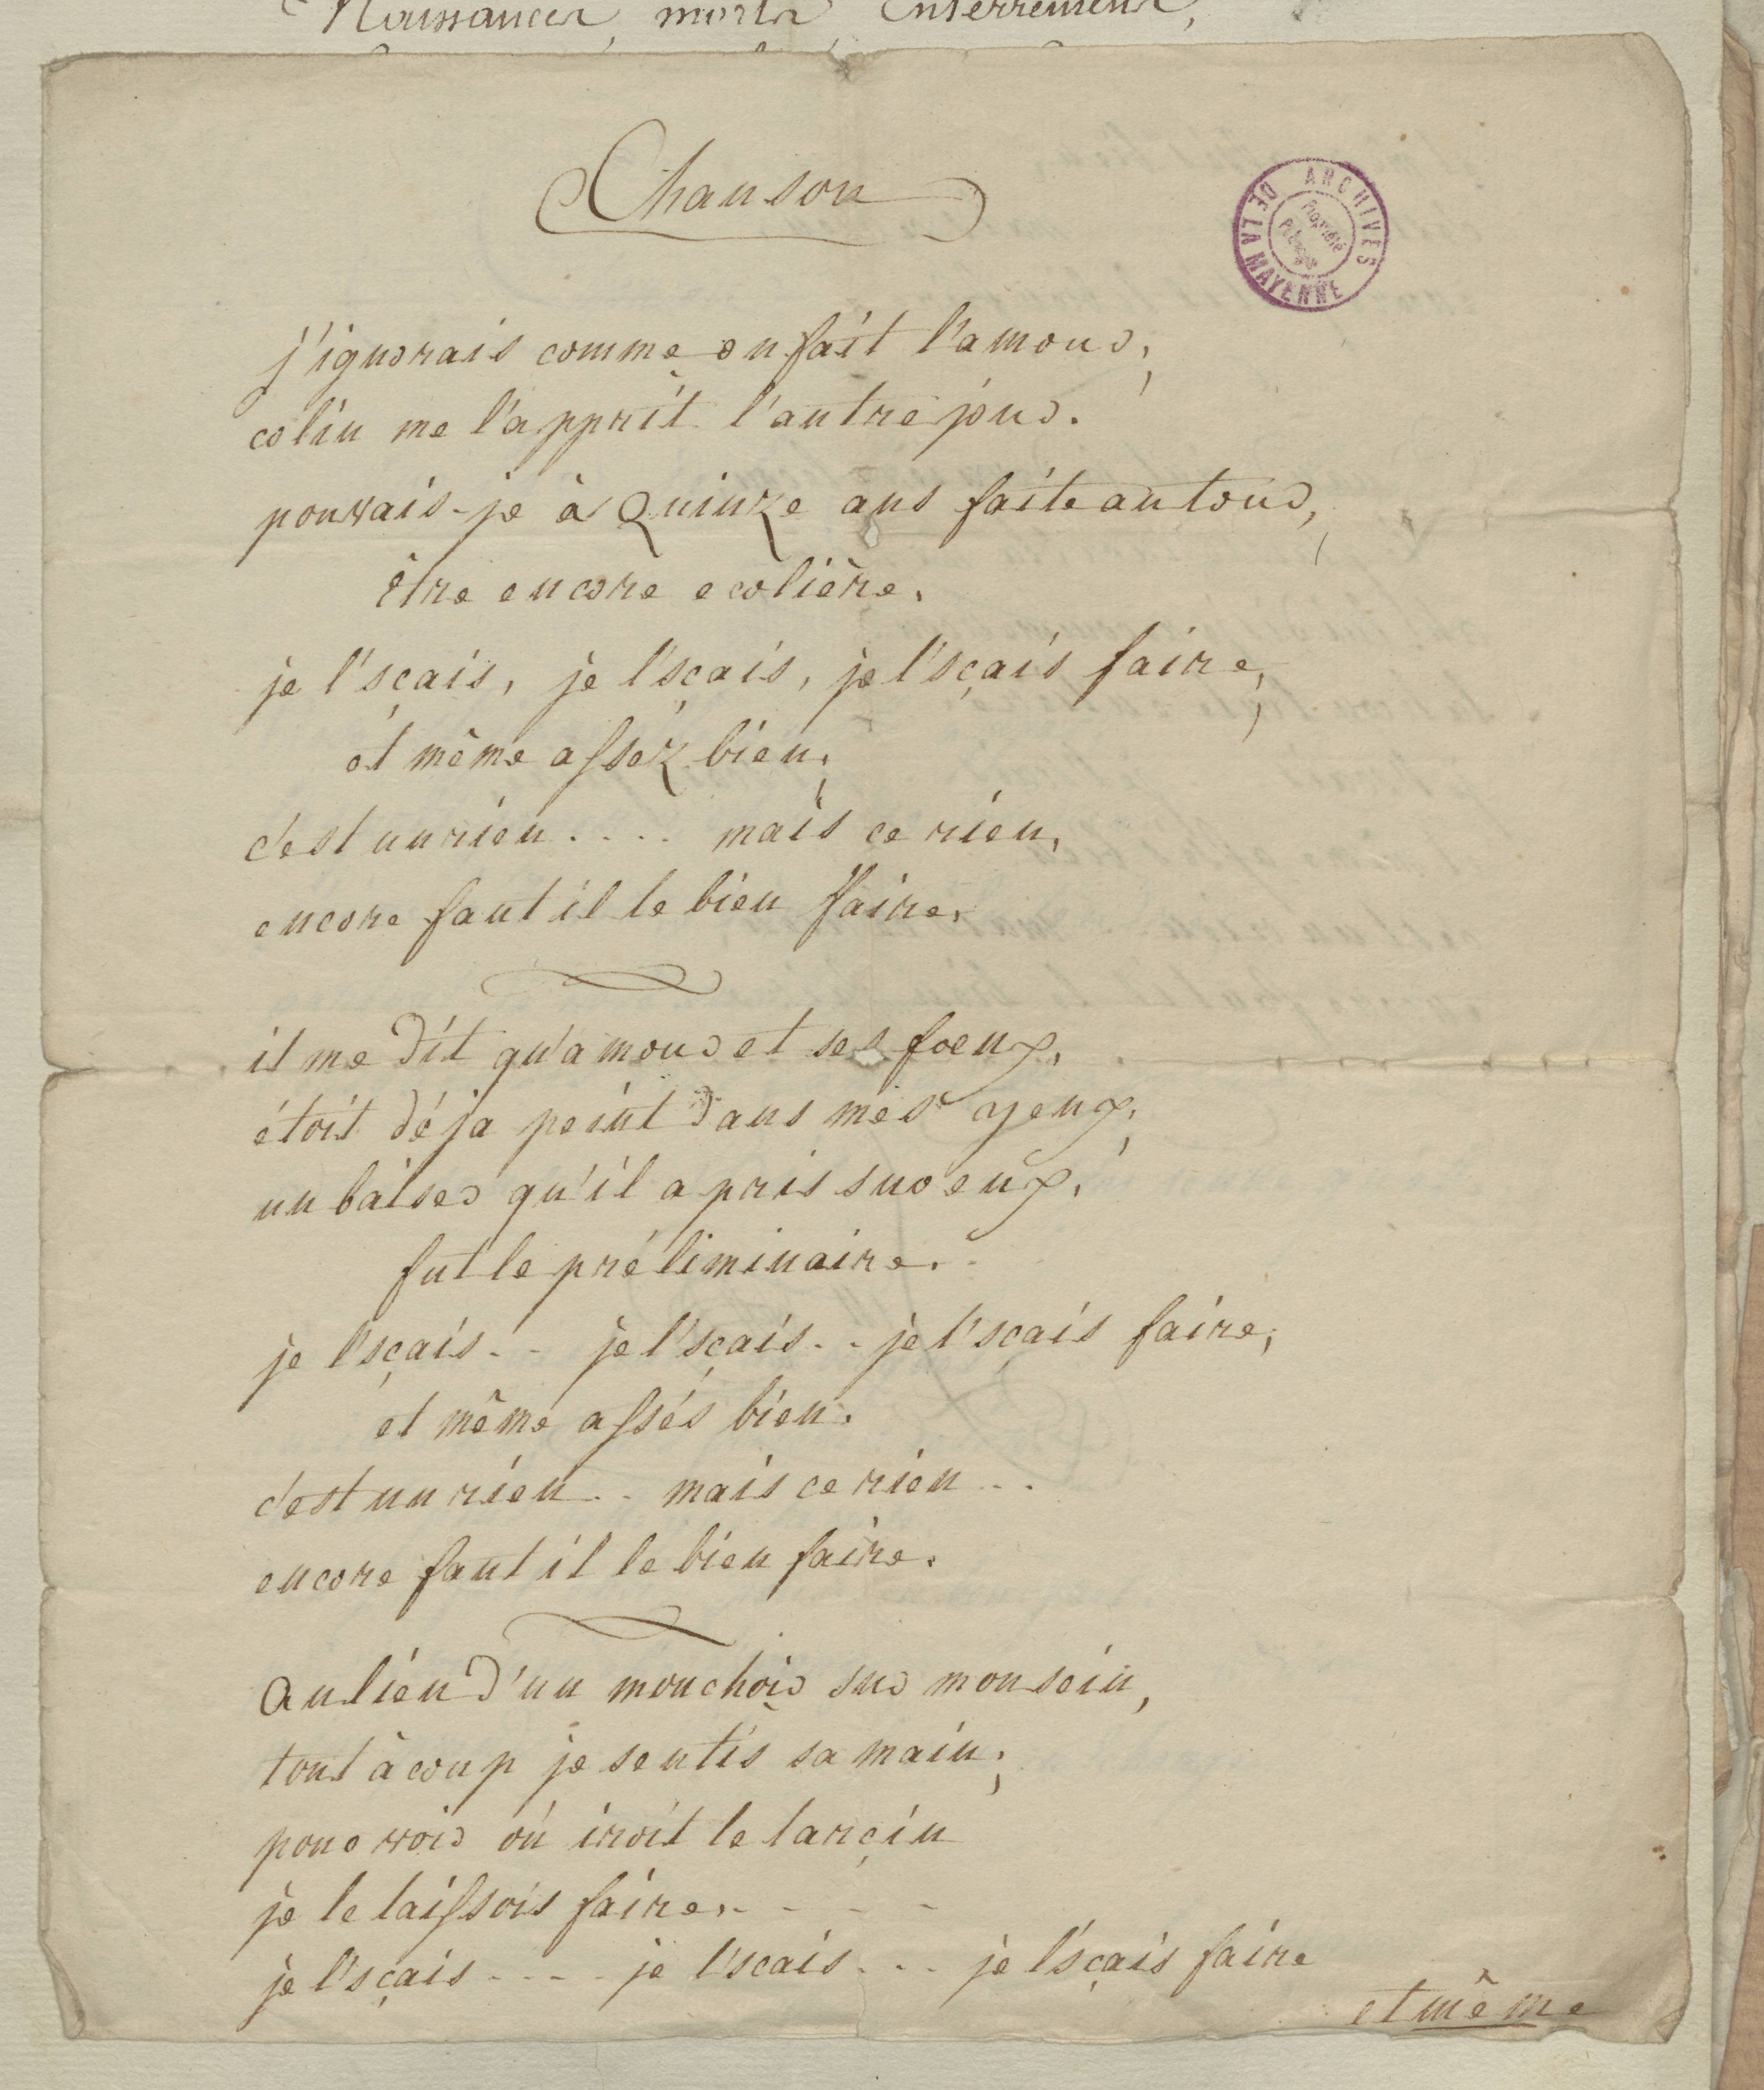 Naissances, morts, Enterremens,
Chanson
ARCHIVES DE LA MAYENNE
Propriété Publique
j'ignorais comme on fait l'amour,
colin me l'apprit l'autre jour.
pouvais-je à Quinze ans faite au tour,
être encore ecolière.
je l'sçais, je l'sçais, je l'sçais faire,
et même assez bien,
c'est un rien .... mais ce rien,
encore faut il le bien faire.
il me dit qu'amour et ses foeux,
étoit déja peint dans mes yeux,
un baiser qu'il a pris sur eux,
fut le préliminaire.
je l'sçais .. je l'sçais .. je l'sçais faire,
et même assés bien.
c'est un rien .. mais ce rien ..
encore faut il le bien faire.
Au lieu d'un mouchoir sur mon sein,
tout à coup je sentis sa main,
pour voir où iroit le larçin
je le laissois faire. - - - -
je l'sçais .... je l'sçais ... je l'sçais faire
et même